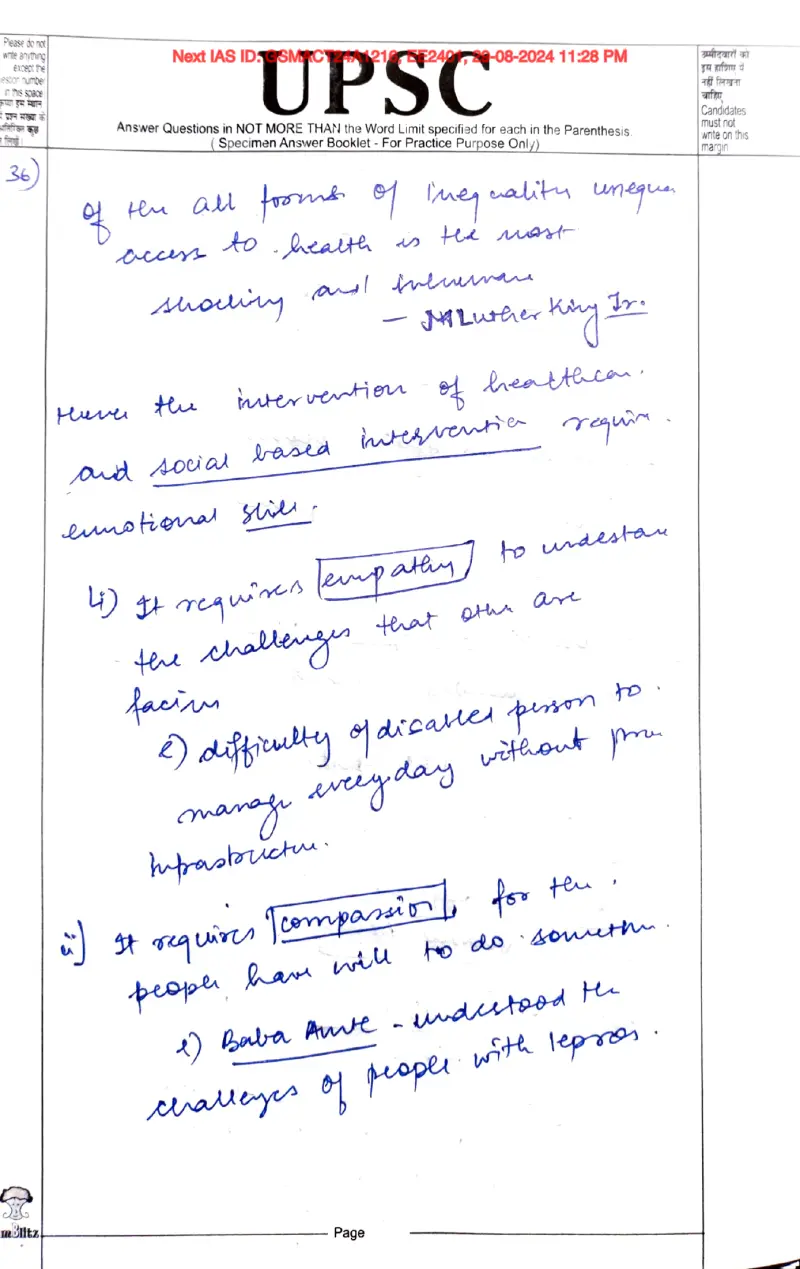 Please do not
write anything
except the
question number
in this space
Next IAS ID: GSMACT24A1216, EE2401, 29-08-2024 11:28 PM
UPSC
Answer Questions in NOT MORE THAN the Word Limit specified for each in the Parenthesis.
( Specimen Answer Booklet - For Practice Purpose Only)
उम्मीदवारों को
इस हाशिए में
नहीं लिखना
चाहिए
Candidates
must not
write on this
margin
36)
Of the all forms of inequality unequa
access to health is the most
shocking and inhumane
- M Luther King Jr.
Hence the intervention of healthcare
and social based intervention require
emotional skill.
i) It requires empathy to understan
the challenges that other are
facing
e) difficulty of disabled person to
manage everyday without
infrastructure.
ii) It requires compassion, for the
people have will to do somethn
e) Baba Amte - understood the
challenges of people with
Page